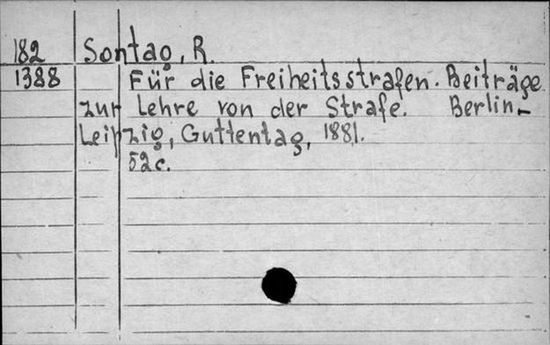 182 Sontag, R.
1388 Für die Freiheitsstrafen. Beiträge
zur Lehre von der Strafe. Berlin-
Leipzig, Guttentag, 1881.
52c.